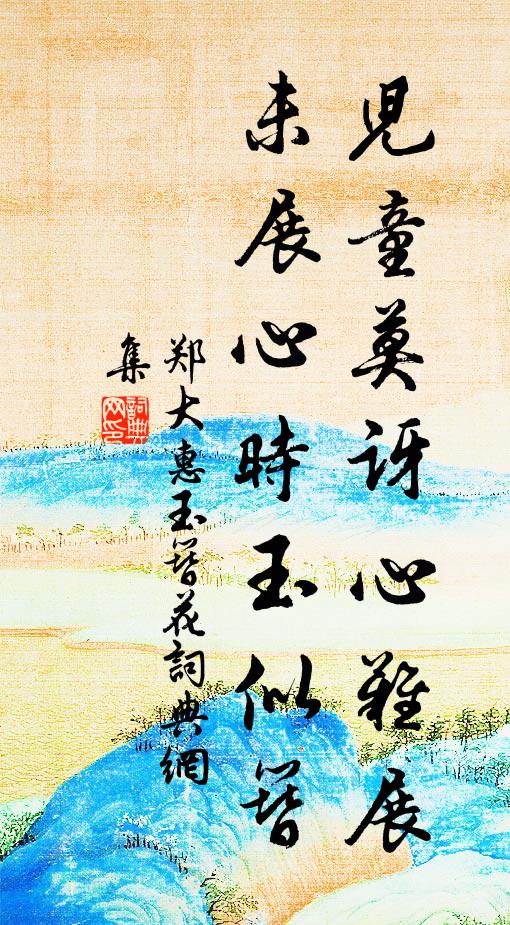 兒童莫訝心難展
未展心時玉似簪
郑大惠玉簪花詞典網
集
詞典網印